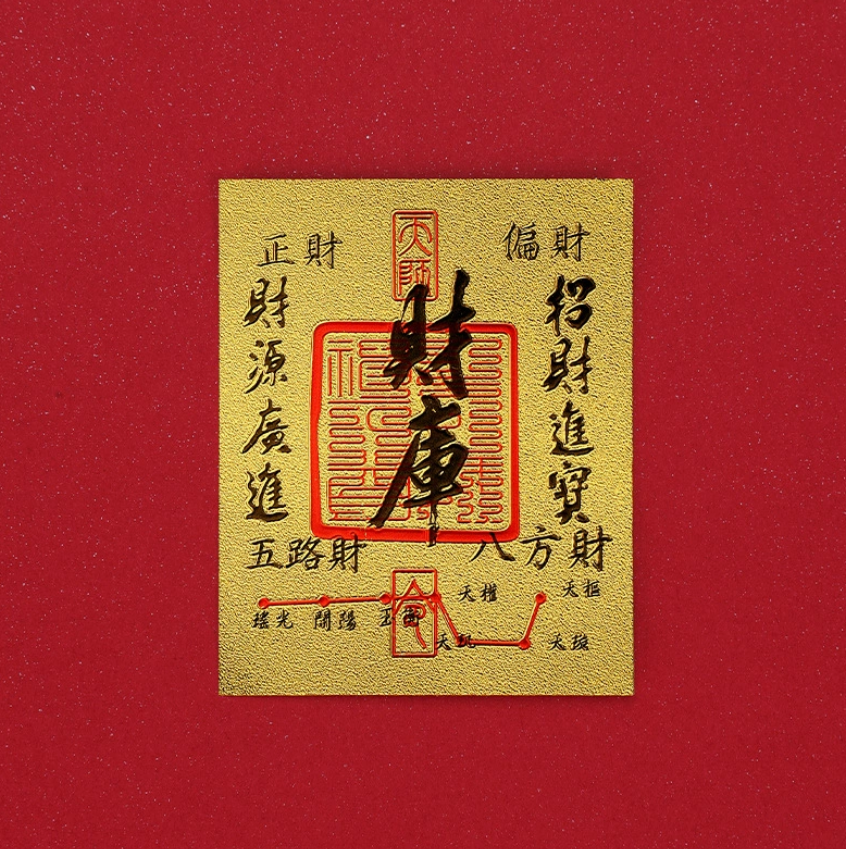 天師
偏財
正財
招財進寶
財庫
財源廣進
八方財
五路財
天樞
天璇
天權
天璣
玉衡
開陽
瑤光